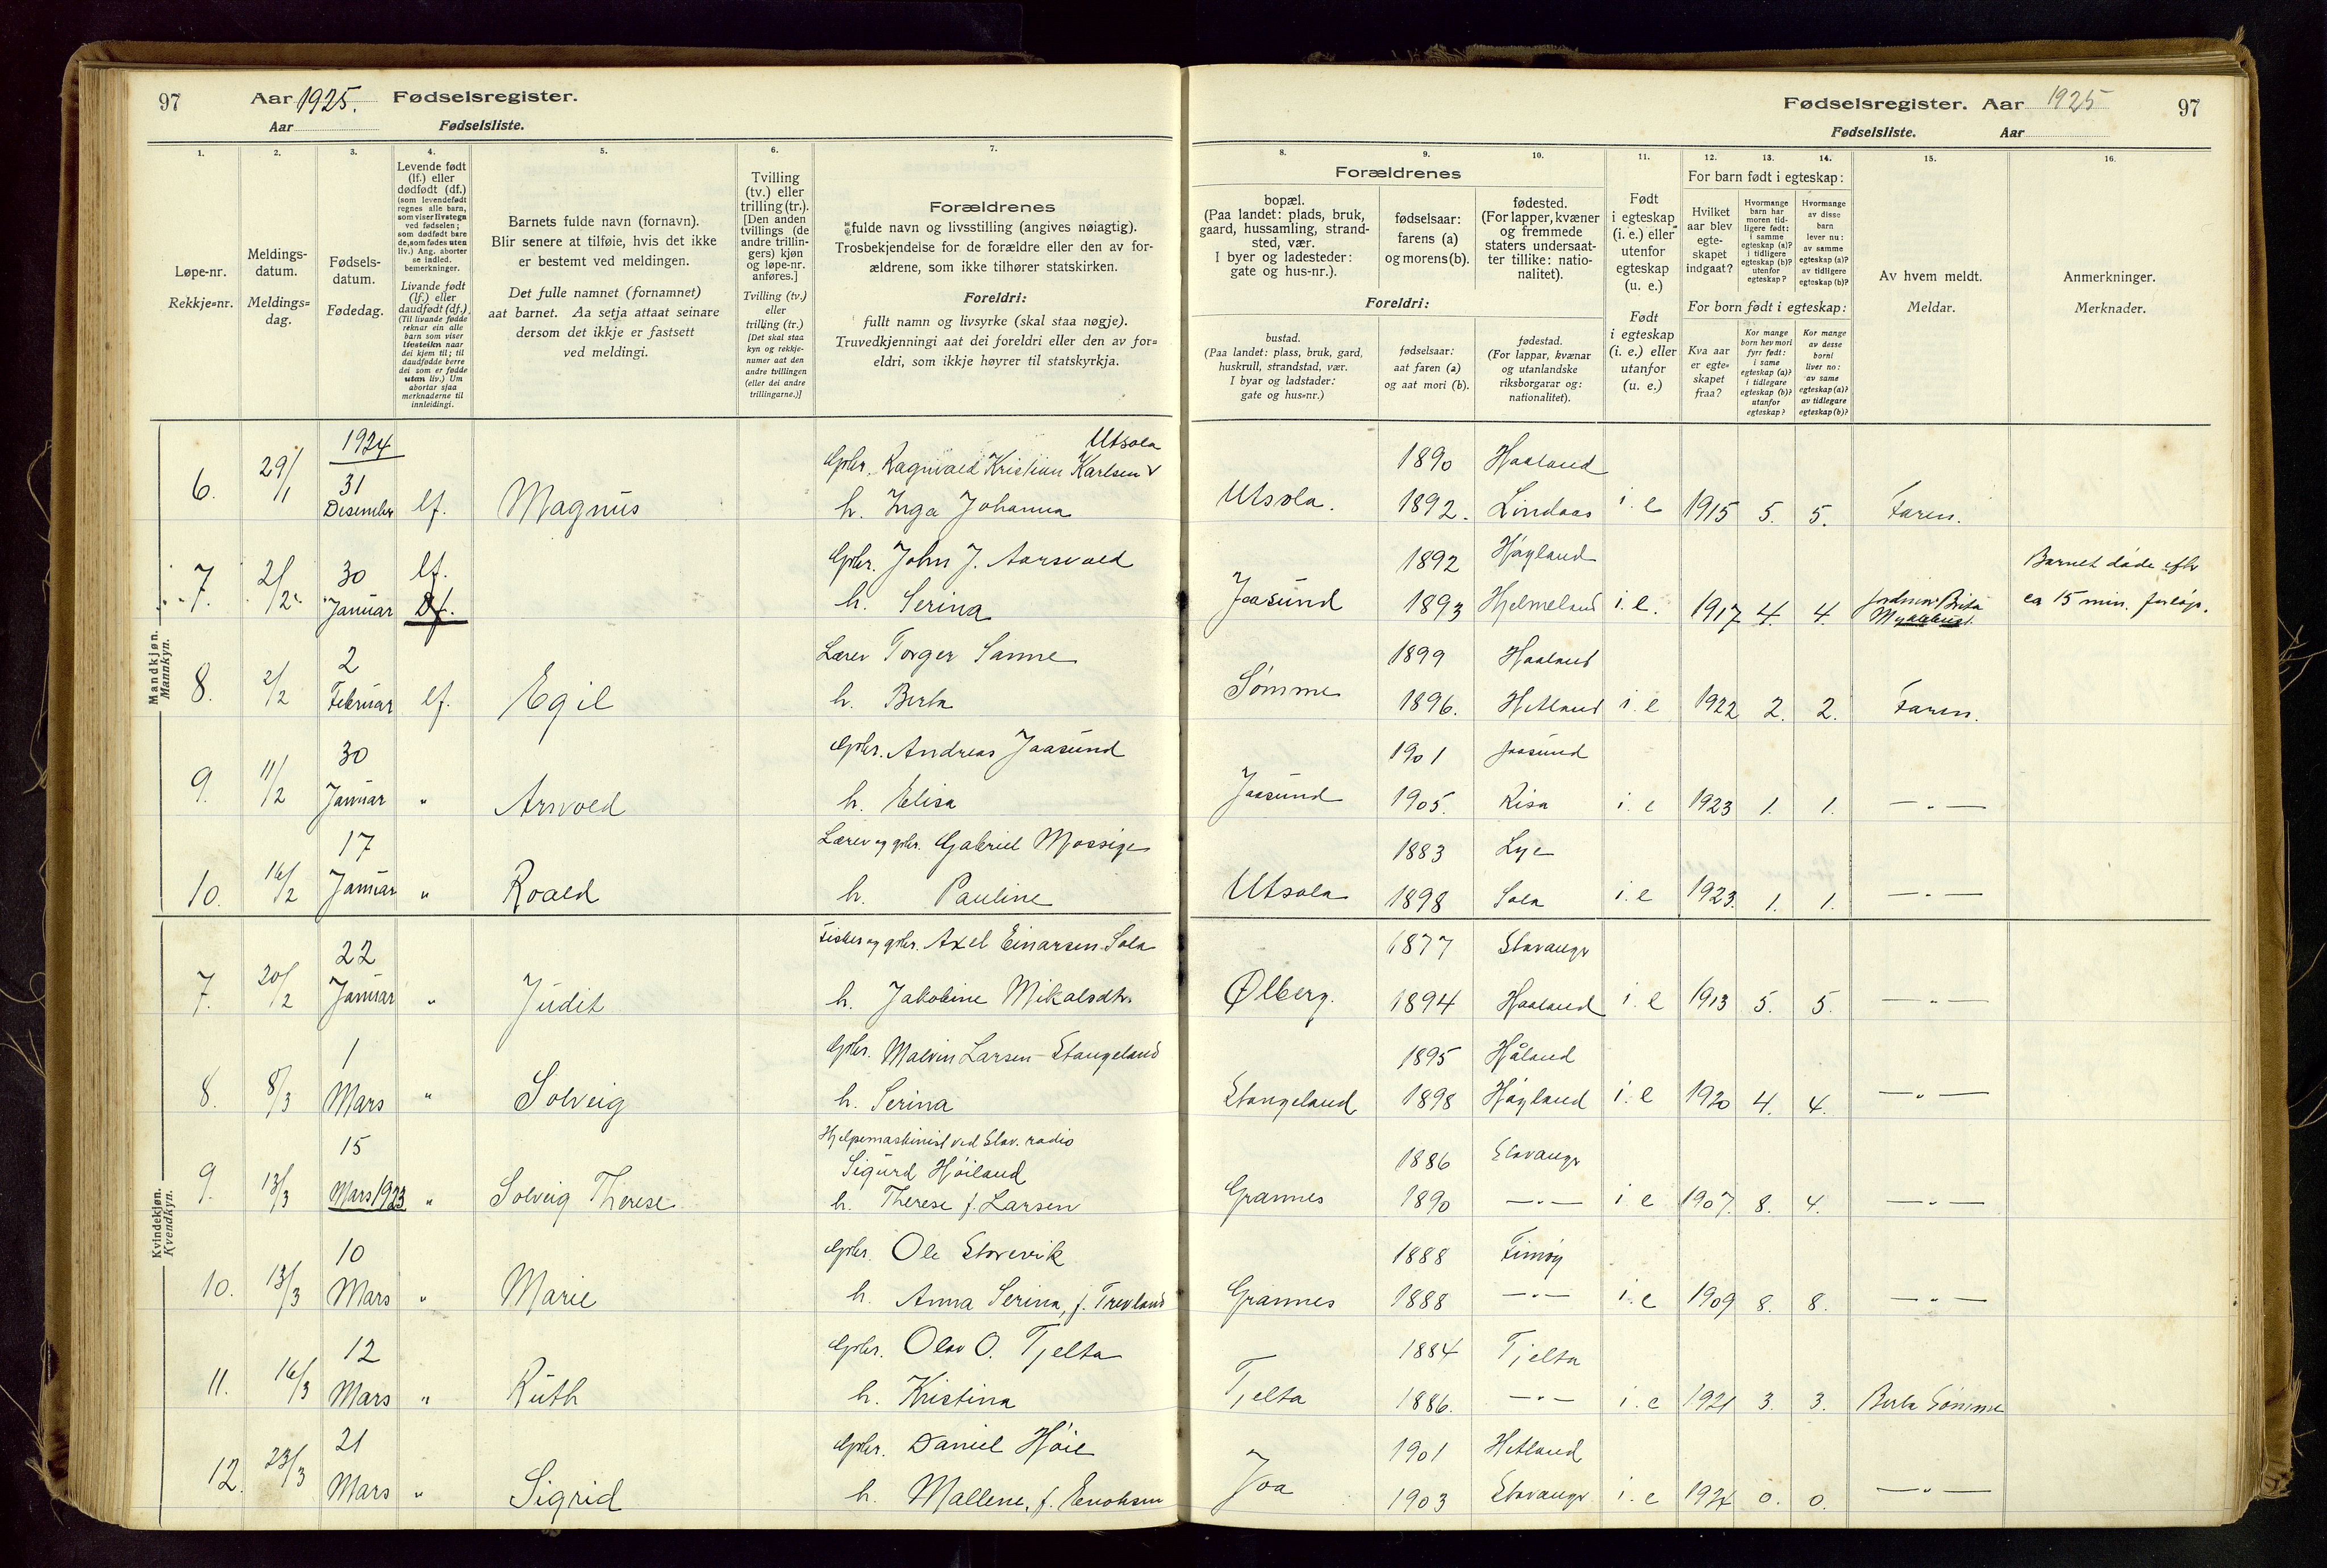 97 Aar 1925. Fødselsregister.
Aar Fødselsliste.
1. 2. 3. 4. 5. 6. 7.
Løpe-nr.
Rekkje=nr.
Meldings-
datum.
Meldings=
dag.
Fødsels-
datum.
Fødedag.
Levende født
(lf.) eller
dødfødt (df.)
(som levendefødt
regnes alle barn,
som viser livstegn
ved fødselen;
som dødfødt bare
de, som fødes uten
liv.) Ang. aborter
se indled.
bemerkninger.
Livande født
(lf.) eller
daudfødt (df.).
(Til livande fødde
reknar ein alle
barn som viser
livsteikn naar
dei kjem til; til
daudfødde berre
dei som er fødde
utan liv.) Um
abortar sjaa
merknaderne til
innleidingi.
Barnets fulde navn (fornavn).
Blir senere at tilføie, hvis det ikke
er bestemt ved meldingen.
Det fulle namnet (fornamnet)
aat barnet. Aa setja attaat seinare
dersom det ikkje er fastsett
ved meldingi.
Tvilling
(tv.) eller
trilling (tr.).
[Den anden
tvillings (de
andre trillin-
gers) kjøn
og løpe-nr.
anføres.]
Tvilling (tv.)
eller
trilling (tr.)
[Det skal staa
kyn og rekkje-
numer aat den
andre tvillingen
(eller dei andre
trillingarne.)]
Forældrenes
fulde navn og livsstilling (angives nøiagtig).
Trosbekjendelse for de forældre eller den av for-
ældrene, som ikke tilhører statskirken.
Foreldri:
fullt namn og livsyrke (skal staa nøgje).
Truvedkjenningi aat dei foreldri eller den av for=
eldri, som ikkje høyrer til statskyrkja.
Fødselsregister. Aar 1925 97
Fødselsliste. Aar
8. 9. 10. 11. 12. 13. 14. 15. 16.
Forældrenes
bopæl.
(Paa landet: plads, bruk,
gaard, hussamling, strand-
sted, vær.
I byer og ladesteder:
gate og hus-nr.).
fødselsaar:
farens (a)
og morens (b).
fødested.
(For lapper, kvæner
og fremmede
staters undersaat-
ter tillike: natio-
nalitet).
Foreldri:
bustad.
(Paa landet: plass, bruk, gard,
huskrull, strandstad, vær.
I byar og ladstader:
gate og hus=nr.)
fødselsaar:
aat faren (a)
og aat mori (b).
fødestad.
(For lappar, kvænar
og utanlandske
riksborgarar og:
nationalitet).
Født
i egteskap
(i. e.) eller
utenfor
egteskap
(u. e.)
Født
i egteskap
(i. e.) eller
utanfor
(u. e.)
For barn født i egteskap:
Hvilket
aar blev
egte-
skapet
indgaat?
Hvormange
barn har
moren tid-
ligere født:
i samme
egteskap (a)?
i tidligere
egteskap (b)?
utenfor
egteskap?
Hvormange
av disse
barn
lever nu:
av samme
egteskap (a)?
av tidligere
egteskap (b)?
For born født i egteskap:
Kva aar
er egte=
skapet
fraa?
Kor mange
born hev mori
fyrr født:
i same
egteskap (a)?
i tidlegare
egteskap (b)?
utanfor
egteskap?
Kor mange
av desse
borni
liver no:
av same
egteskap (a)?
av tidlegare
egteskap (b)?
Av hvem meldt.
Meldar.
Anmerkninger.
Merknader.
Mandkjøn.
Mannkyn.
1924 Utsola
6. 29/1 31 Gbr. Ragnvald Kristian Karlsen 1890 Haaland
Desember lf. Magnus h. Inga Johanna Utsola. 1892. Lindaas i. e 1915 5. 5. Faren.
7. 2/2 30 lf. Gbr. John J. Aarsvold 1892 Høyland Barnet døde efter
Januar Df. h. Serina Jaasund 1893 Hjelmeland i. e. 1917 4. 4. Jordmor Brita ca 15 min. forløp.
Myklebust.
8. 2/2 2 Lærer Torger Sanne 1899 Haaland
Februar lf. Egil h. Berta Sømme 1896. Hetland i. e 1922 2. 2. Faren.
9. 11/2 30 Gbr. Andreas Jaasund 1901 Jaasund
Januar " Arnvold h. Elisa Jaasund 1905. Risa i. e 1923 1. 1. — " —
10. 16/2 17 Lærer og gbr. Gabriel Mossige 1883 Lye
Januar " Roald h. Pauline Utsola 1898 Sola i. e 1923. 1. 1. — " —
Kvindekjøn.
Kvendkyn.
7. 20/2 22 Fisker og gbr. Axel Einarsen Sola 1877 Stavanger
Januar " Judit h. Jakobine Mikalsdtr. Ølberg. 1894 Haaland i. e 1913 5. 5. — " —
8. 8/3 1 Gbr. Malvin Larsen-Stangeland 1895 Håland
Mars " Solveig h. Serina Stangeland 1898 Høyland i. e 1920 4. 4. — " —
Hjelpemaskinist ved Stav. radio
9. 13/3 15 Sigurd Høiland 1886 Stavanger
Mars 1923 " Solveig Therese h. Therese f. Larsen Grannes 1890 — " — i. e 1907. 8. 4. — " —
10. 13/3 10 Gbr. Ole Storevik 1888 Finnøy
Mars " Marie h. Anna Serina, f. Trevland Grannes 1888 — " — i. e 1909 8. 8. — " —
11. 16/3 12 Gbr. Olav O. Tjelta 1884 Tjelta
Mars " Ruth h. Kristina Tjelta 1886. — " — i. e 1921 3. 3. Berta Sømme
12. 23/3 21 Gbr. Daniel Høie 1901 Hetland
Mars " Sigrid h. Mallene, f. Enoksen Joa 1903 Stavanger i. e 1924 0. 0. — " —